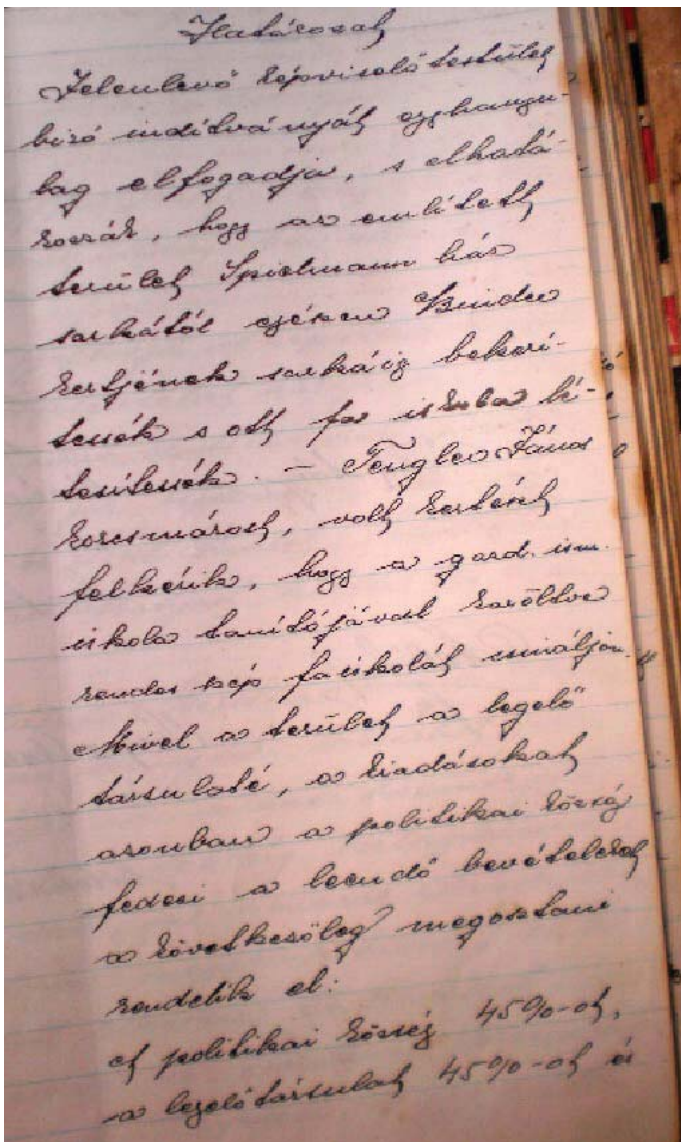 Határozat
Jelenlevő képviselőtestület
biró inditványát egyhangu-
lag elfogadja, s elhatá-
rozzák, hogy az emlitett
terület Spielmann ház
sarkától egészen Binder
kertjének sarkáig bekeri-
tessék s ott fa iskola lé-
tesitessék. – Tengler János
korcsmárost, volt kertészt
felkérik, hogy a gazd. ism.
iskola tanitójával karöltve
rendes szép faiskolát csináljon.
Mivel a terület a legelő
társulaté, a kiadásokat
azonban a politikai község
fedezi a leendő bevételeket
a következőleg megosztani
rendelik el:
A politikai község 45%-ot,
a legelőtársulat 45%-ot és